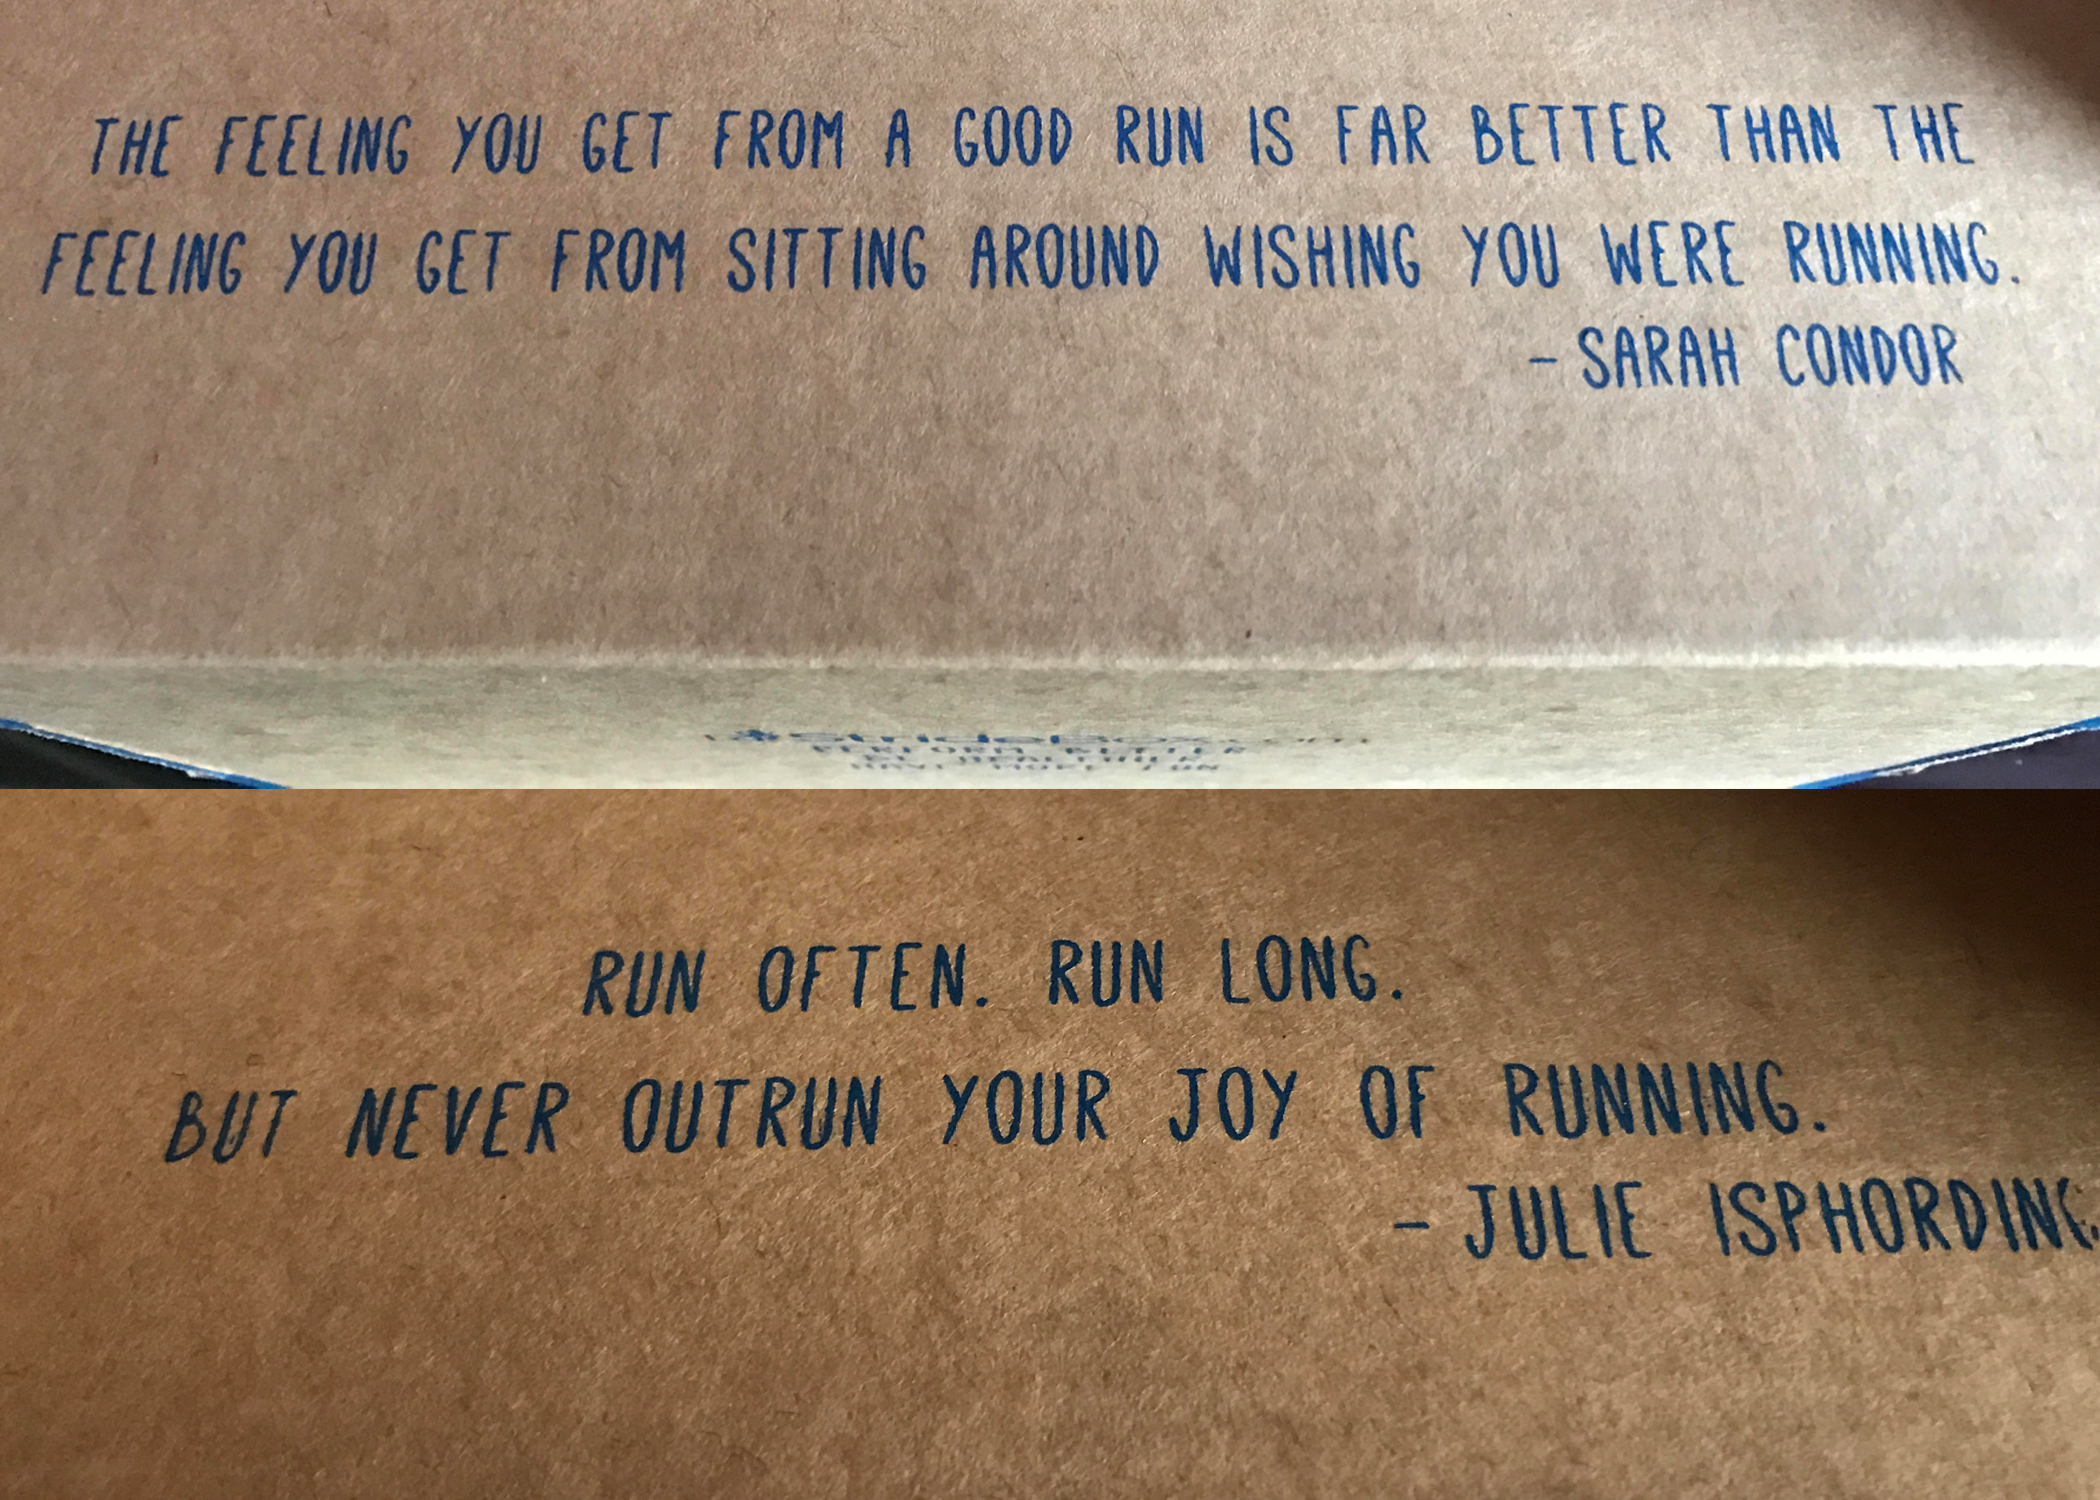 THE FEELING YOU GET FROM A GOOD RUN IS FAR BETTER THAN THE
FEELING YOU GET FROM SITTING AROUND WISHING YOU WERE RUNNING.
- SARAH CONDOR
StrideBox.com
PERFORM BETTER
BE HEALTHIER
HAVE MORE FUN
RUN OFTEN. RUN LONG.
BUT NEVER OUTRUN YOUR JOY OF RUNNING.
- JULIE ISPHORDING